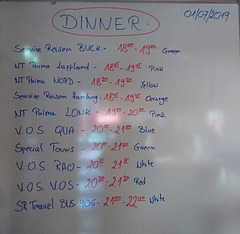 DINNER:
01/07/2019
Service Reisen BUCK - 18³⁰ - 19³⁰ Green
NT Prima Lappland - 18⁴⁵ - 19⁴⁵ Pink
NT Prima NORD - 18³⁰ - 19³⁰ Yellow
Service Reisen Hamburg - 18⁴⁵ - 19⁴⁵ Orange
NT Prima LONK - 19⁰⁰ - 20⁰⁰ Pink
V.O.S. QUA - 20⁰⁰ - 21⁰⁰ Blue
Special Tours - 20⁰⁰ - 21⁰⁰ Green
V.O.S. RAO - 20³⁰ 21³⁰ White
V.O.S. V.O.S - 20³⁰ - 21³⁰ Red
SR Travel BUS 906 - 21⁰⁰ - 22⁰⁰ White